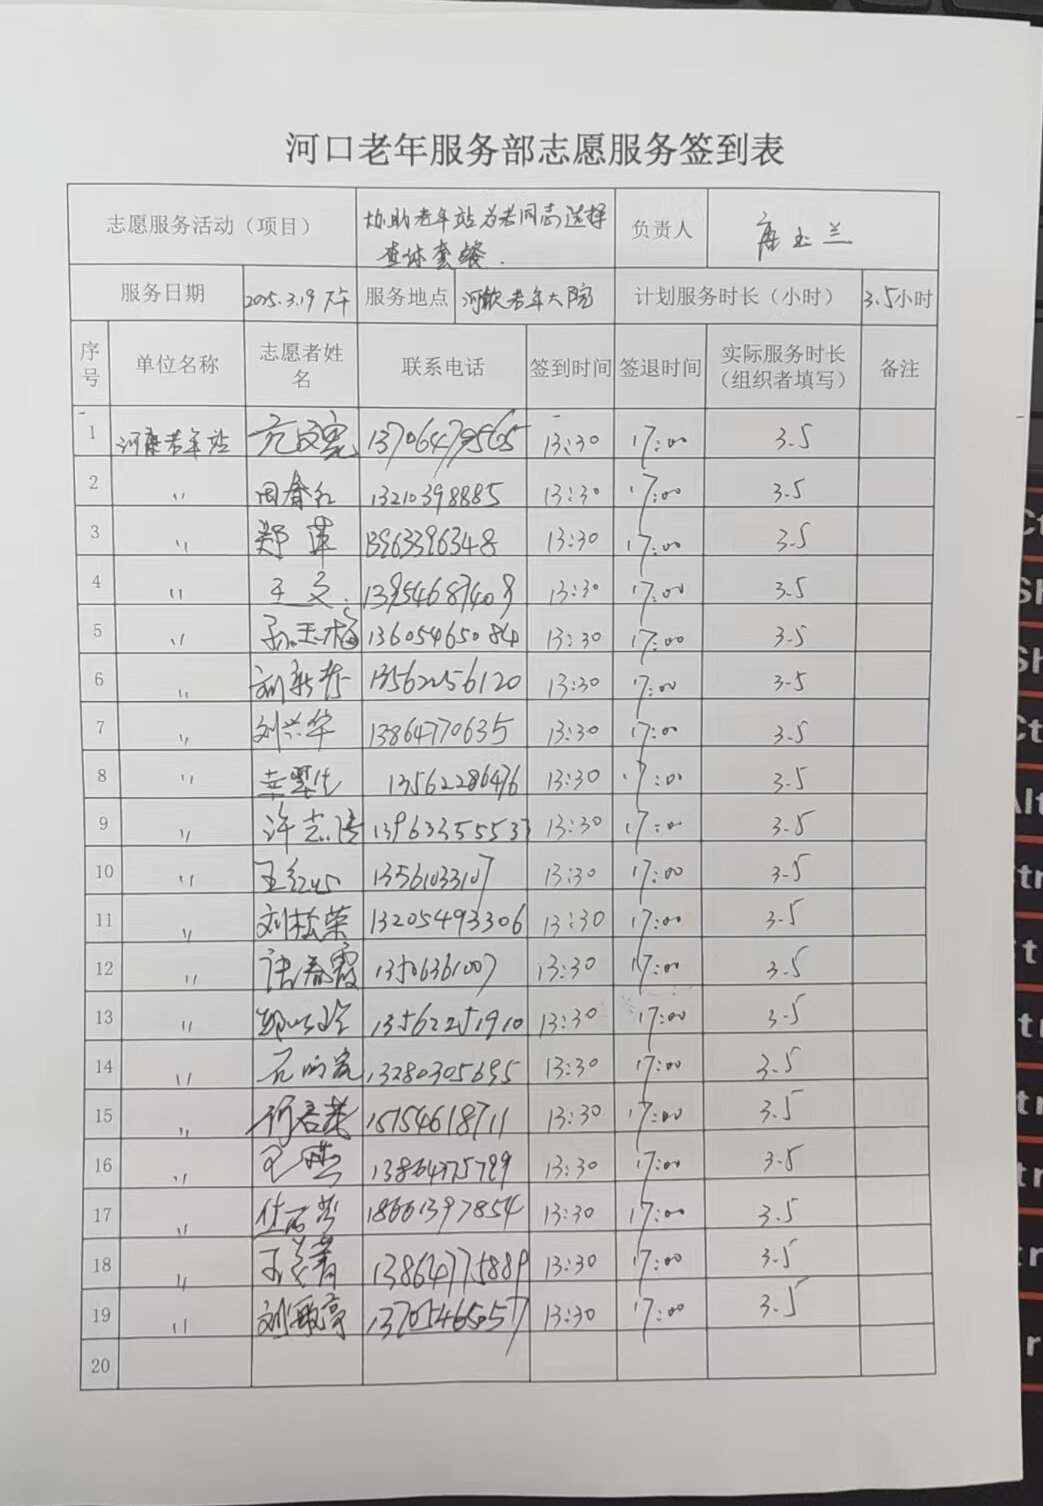 河口老年服务部志愿服务签到表
志愿服务活动（项目） 协助老年站为老同志选择 负责人
查体套餐. 玉兰
服务日期 2025.3.19下午 服务地点 老年大院 计划服务时长（小时） 3.5小时
序号 单位名称 志愿者姓名 联系电话 签到时间 签退时间 实际服务时长（组织者填写） 备注
1 老年站 13706479565 13:30 17:00 3.5
2 〃 周春红 13210398885 13:30 17:00 3.5
3 〃 郑萍 13963396348 13:30 17:00 3.5
4 〃 王文 13954687409 13:30 17:00 3.5
5 〃 孙玉梅 13605465084 13:30 17:00 3.5
6 〃 13562256120 13:30 17:00 3.5
7 〃 刘兴华 13864770635 13:30 17:00 3.5
8 〃 13562286476 13:30 17:00 3.5
9 〃 许志 13963355533 13:30 17:00 3.5
10 〃 13561033107 13:30 17:00 3.5
11 〃 刘松荣 13205493306 13:30 17:00 3.5
12 〃 张春霞 13506361007 13:30 17:00 3.5
13 〃 13562251910 13:30 17:00 3.5
14 〃 13280305695 13:30 17:00 3.5
15 〃 15154618711 13:30 17:00 3.5
16 〃 13864775789 13:30 17:00 3.5
17 〃 18661397854 13:30 17:00 3.5
18 〃 13864775889 13:30 17:00 3.5
19 〃 刘敏亭 13705465057 13:30 17:00 3.5
20
Ct
Sh
Sh
Ct
Alt